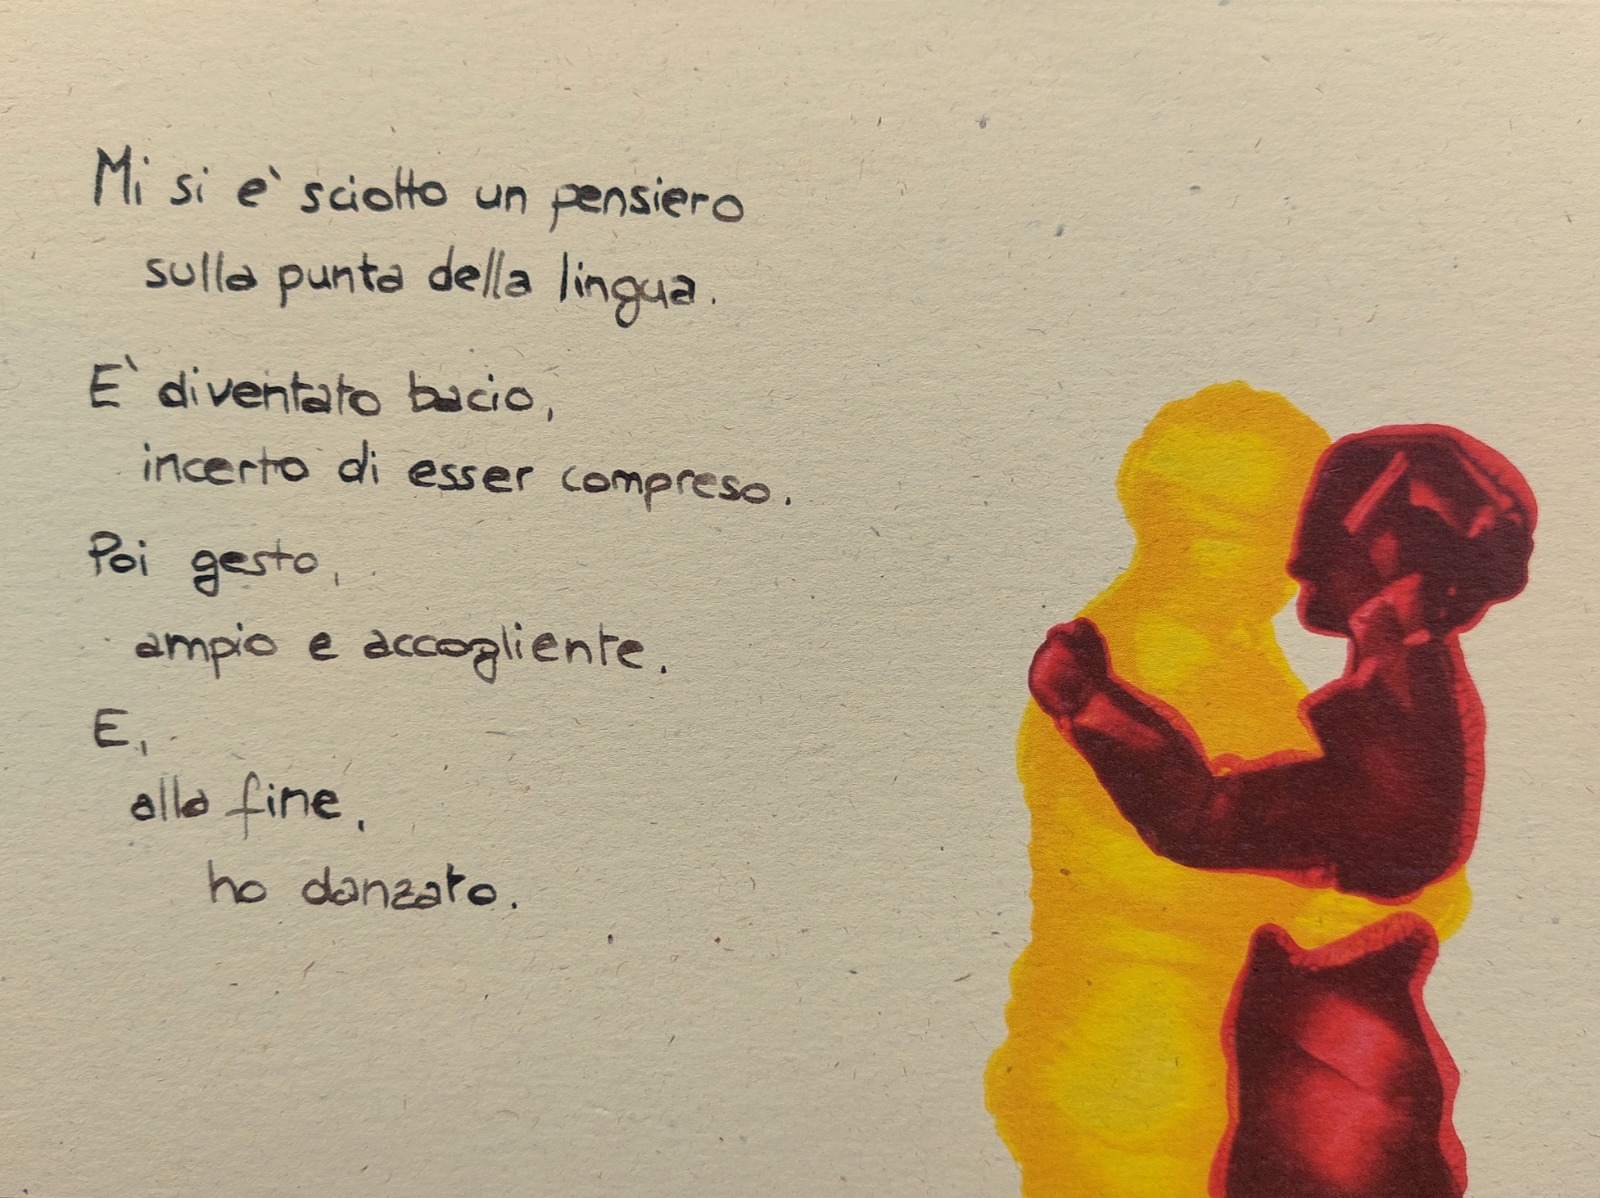 Mi si e` sciolto un pensiero
sulla punta della lingua.
E` diventato bacio,
incerto di esser compreso.
Poi gesto,
ampio e accogliente.
E,
alla fine,
ho danzato.